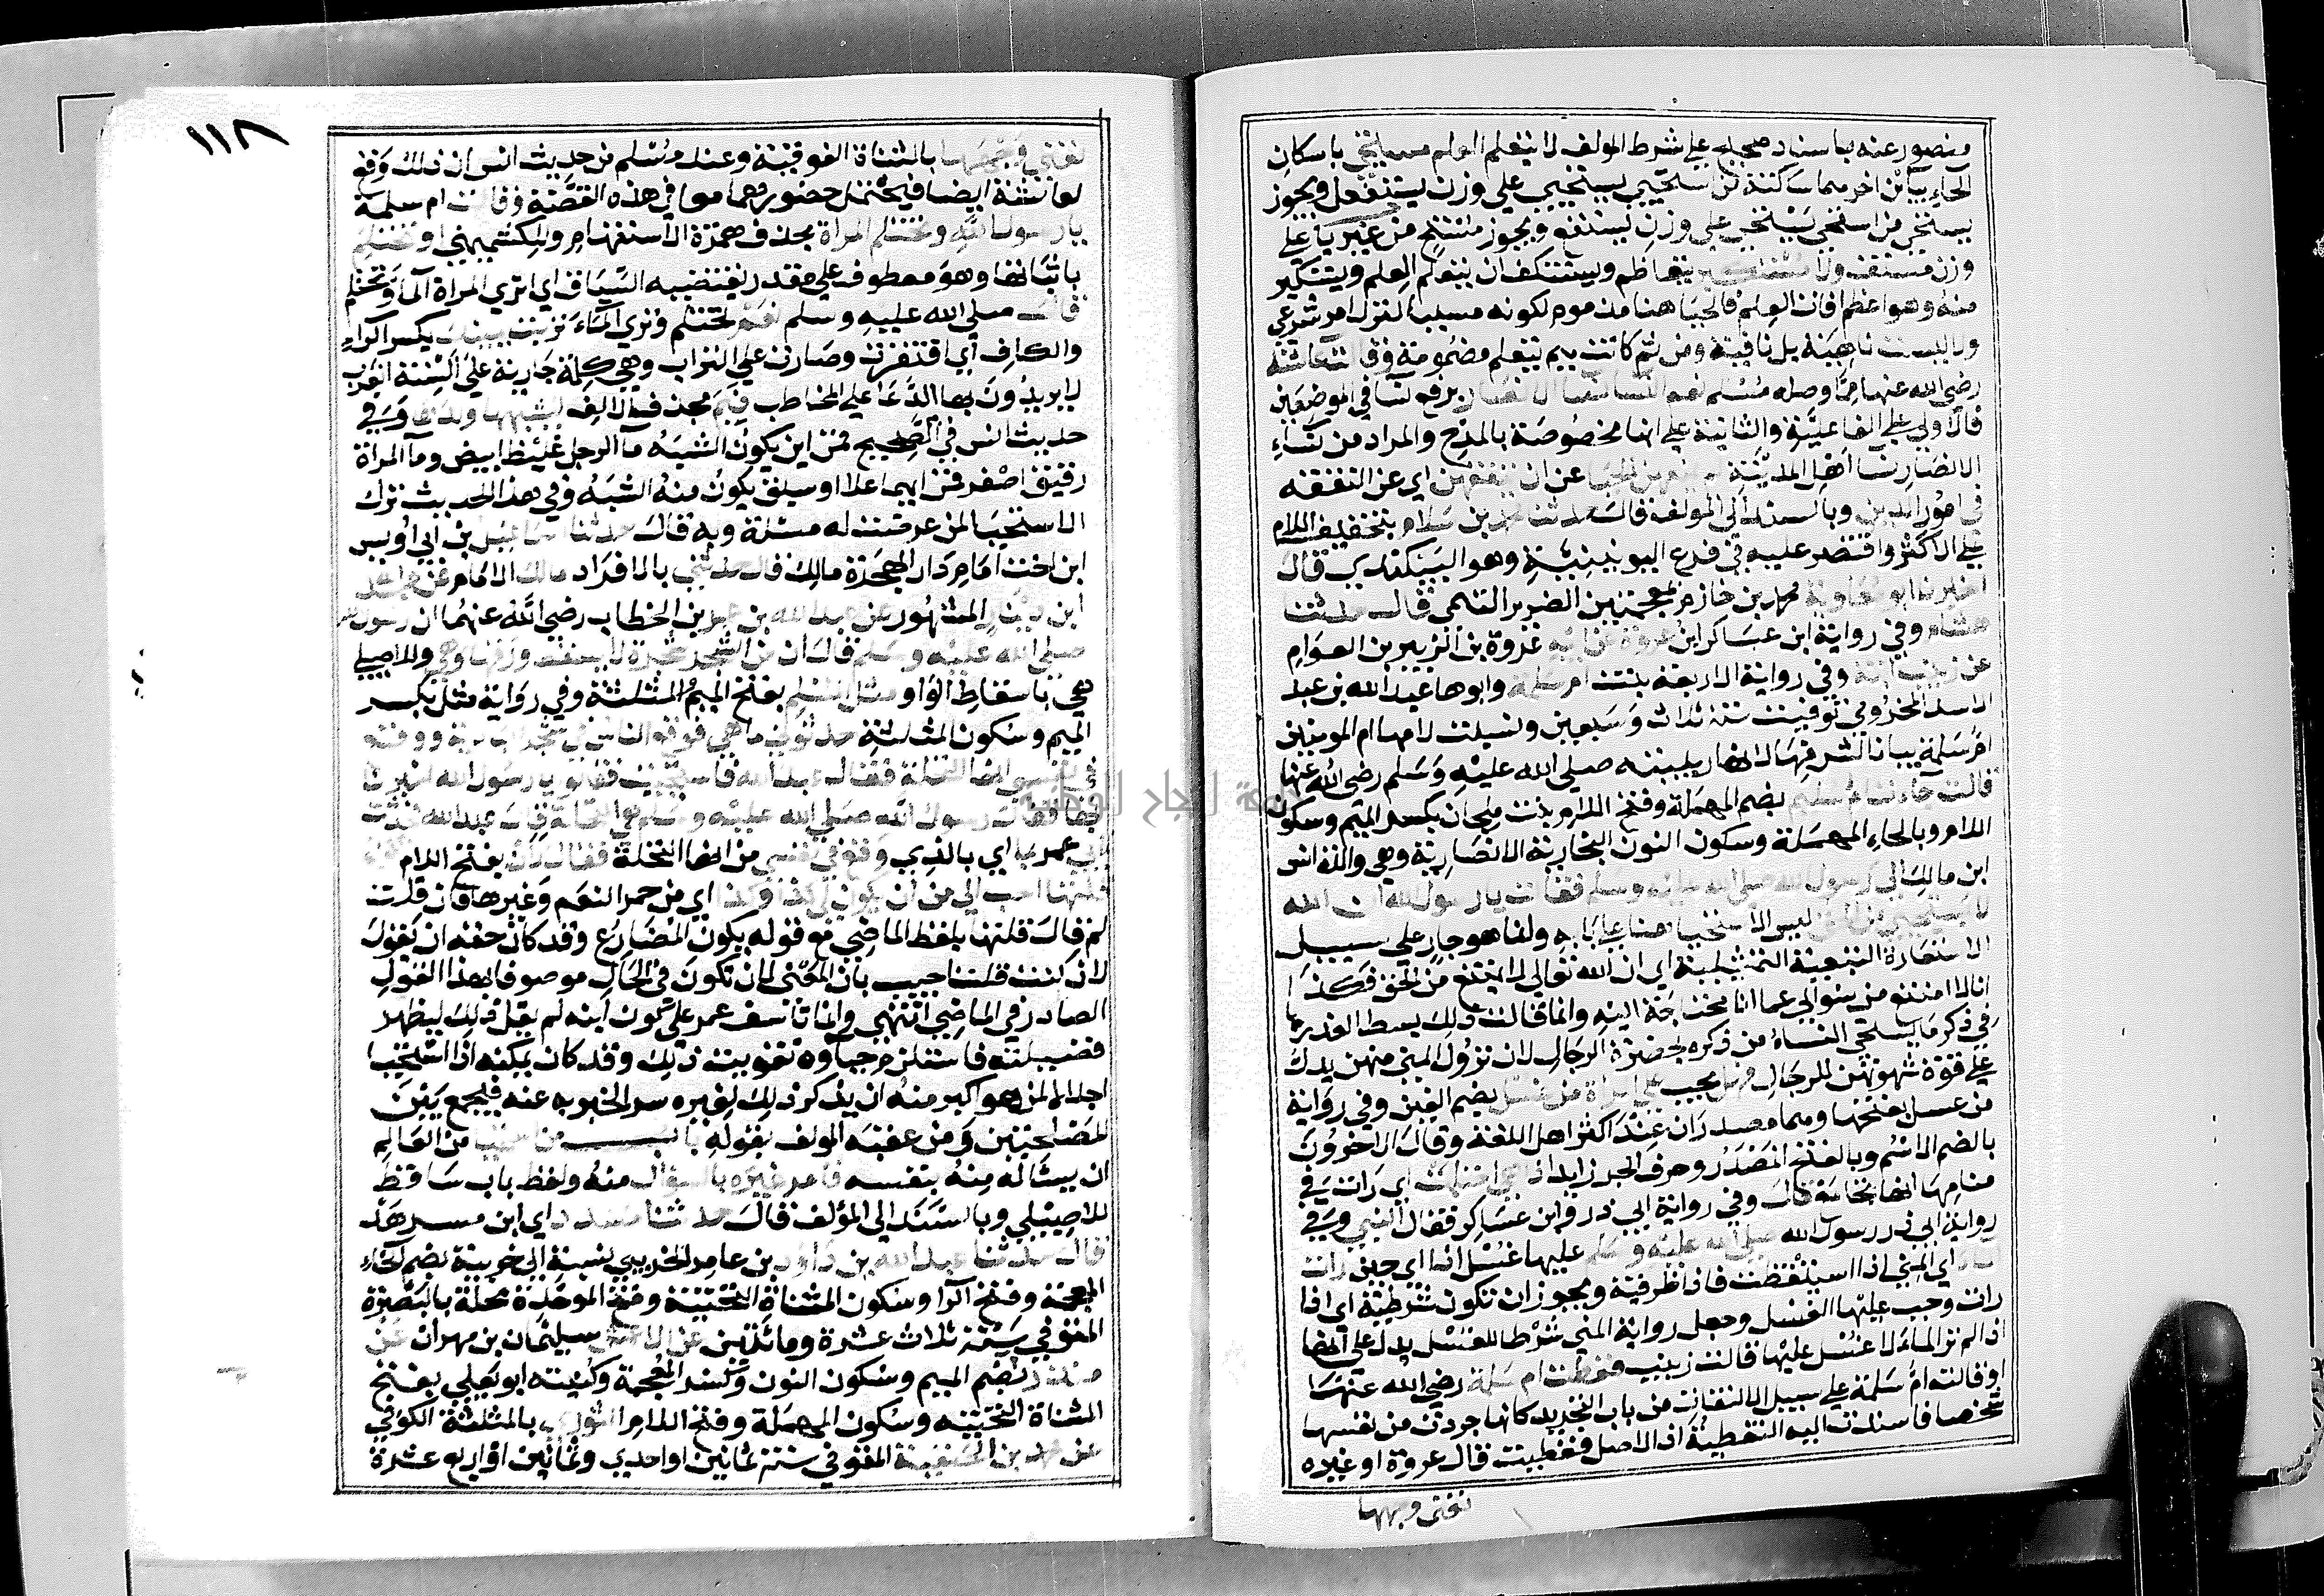 منصور عنه باسناد صحيح على شرط المولف لا يتعلم العلم مستحي باسكان
الحاء بيأين اخرهما ساكنة من استحيي يستحيي على وزن يستفعل ويجوز
يستحي من استحي يستحي على وزن يستفع ويجوز مستح من غير يا على
وزن مستف ولا مستكبر يتعاظم ويستنكف ان يتعلم العلم ويتكبر
منه وهو اعظم افات العلم فالحيا هنا مذموم لكونه مسببا لترك امر شرعي
ولا ليست ناهية بل نافية ومن ثم كانت ميم يتعلم مضمومة وقالت عائشة
رضى الله عنها مما وصله مسلم نعم النسا نسا الانصار برفع نسا في الموضعين
فالاولى على الفاعلية والثانية على انها مخصوصة بالمدح والمراد من نساء
الانصار نسا اهل المدينة لم يمنعهن الحيا عن ان يتفقهن اي عن التفقه
في امور الدين وبالسند الى المولف قال حدثنا محمد بن سلام بتخفيف اللام
على الاكثر واقتصر عليه في فرع اليونينية وهو البيكندي قال
اخبرنا ابو معاوية محمد بن خازم بمعجمتين الضرير التيمي قال حدثنا
هشام وفي رواية ابن عساكر ابن عروة عن ابيه عروة بن الزبير بن العوام
عن زينب ابنة وفي رواية الاربعة بنت ام سلمة وابوها عبد الله بن عبد
الاسد المخزومي توفيت سنة ثلاث وسبعين ونسبت لامها ام المومنين
ام سلمة بيانا لشرفها لانها ربيبته صلى الله عليه وسلم رضى الله عنها
قالت جاءت ام سليم بضم المهملة وفتح اللام بنت ملحان بكسر الميم وسكون
اللام وبالحاء المهملة وسكون النون النجارية الانصارية وهي والدة انس
ابن مالك الى رسول الله صلى الله عليه وسلم فقالت يا رسول الله ان الله
لا يستحيي من الحق ليس الاستحيا هنا على بابه وانما هو جار على سبيل
الاستعارة التبعية التمثيلية اي ان الله تعالى لا يمتنع من الحق فكذا
انا لا امتنع من سوالي عما انا محتاجة اليه وانما قالت ذلك بسط العذرها
في ذكر ما يستحي النساء من ذكره بحضرة الرجال لان نزول المني منهن يدل
على قوة شهوتهن للرجال فهل يجب على امراة من غسل بضم الغين وفي رواية
من غسل بفتحها وهما مصدران عند اكثر اهل اللغة وقال الاخرون
بالضم الاسم وبالفتح المصدر وحرف الجر زايد اذا هي احتلمت اي رات في
منامها انها تجامع قال وفي رواية ابي ذر وابن عساكر فقال النبي وفي
رواية ابي ذر رسول الله صلى الله عليه وسلم عليها غسل اذا اي حين رات
الماء اي المني اذا استيقظت فاذا ظرفية ويجوز ان تكون شرطية اي اذا
رات وجب عليها الغسل وجعل رواية المني شرطا للغسل يدل على انها
اذا لم تر الماء لا غسل عليها قالت زينب فغطت ام سلمة رضي الله عنها
او قالته ام سلمة على سبيل الالتفات من باب التجريد كانها جردت من نفسها
شخصا فاسندت اليه التغطية اذ الاصل فغطيت قال عروة او غيره
تعني وجهها
١١٨
تعني وجهها بالمثناة الفوقية وعند مسلم من حديث انس ان ذلك وقع
لعائشة ايضا فيحتمل حضورهما معا في هذه القصة وقالت ام سلمة
يا رسول الله وتحتلم المراة بحذف همزة الاستفهام وللكشميهني او تحتلم
باثباتها وهو معطوف على مقدر يقتضيه السياق اي اترى المراة الماء وتحتلم
قال صلى الله عليه وسلم نعم تحتلم وترى الماء تربت يمينك بكسر الراء
والكاف اي افتقرت وصارت على التراب وهي كلمة جارية على السنة العرب
لا يريدون بها الدعا على المخاطب فبم بحذف الالف يشبهها ولدها وفي
حديث انس في الصحيح فمن اين يكون الشبه ما الرجل غليظ ابيض وما المراة
رقيق اصفر فمن ايهما علا او سبق يكون منه الشبه وفي هذا الحديث ترك
الاستحيا لمن عرضت له مسئلة وبه قال حدثنا اسماعيل بن ابي اويس
ابن اخت امام دار الهجرة مالك قال حدثني بالافراد مالك الامام عن عبد الله
ابن دينار المشهور عن عبد الله بن عمر بن الخطاب رضى الله عنهما ان رسول الله
صلى الله عليه وسلم قال ان من الشجر شجرة لا يسقط ورقها وهي وللاصيلي
هي باسقاط الواو مثل المسلم بفتح الميم المثلثة وفي رواية مثل بكسر
الميم وسكون المثلثة حدثوني ما هي فوقع الناس في شجر البادية ووقع
في نفسي انها النخلة فقال عبد الله فاستحييت فقالو يا رسول الله اخبرنا
بها فقال رسول الله صلى الله عليه وسلم هي النخلة قال عبد الله فحدثت
ابي عمر بما اي بالذي وقع في نفسي من انها النخلة فقال لان بفتح اللام
قلتها احب الى من ان يكون لي كذا وكذا اي من حمر النعم وغيرها فان قلت
لم قال قلتها بلفظ الماضي مع قوله يكون المضارع وقد كان حقه ان يقول
لان كنت قلت اجيب بان المعنى لان تكون في الحال موصوفا بهذا القول
الصادر في الماضي انتهى وانما تاسف عمر على كون ابنه لم يقل ذلك ليظهر
فضيلته فاستلزم حياوه تفويت ذلك وقد كان يمكنه اذا استحيا
اجلالا لمن هو اكبر منه ان يذكر ذلك لغيره سرا ليخبر به عنه فيجمع بين
المصلحتين ومن عقبه المولف بقوله باب من استحيا من العالم
ان يسئاله منه بنفسه فامر غيره بالسؤال منه ولفظ باب ساقط
للاصيلي وبالسند الى المؤلف قال حدثنا مسدد اي ابن مسرهد
قال حدثنا عبد الله بن داود بن عامر الخريبي نسبة الى خريبة بضم الخاء
المعجمة وفتح الرا وسكون المثناة التحتية وفتح الموحدة محلة بالبصرة
المتوفي سنة ثلاث عشرة ومائتين عن الاعمش سليمان بن مهران عن
منذر بضم الميم وسكون النون وكسر المعجمة وكنيته ابو يعلي بفتح
المثناة التحتيه وسكون المهملة وفتح اللام الثوري بالمثلثة الكوفي
عن محمد بن الحنفية المتوفي سنة ثمانين او احدي وثمانين او اربع عشرة